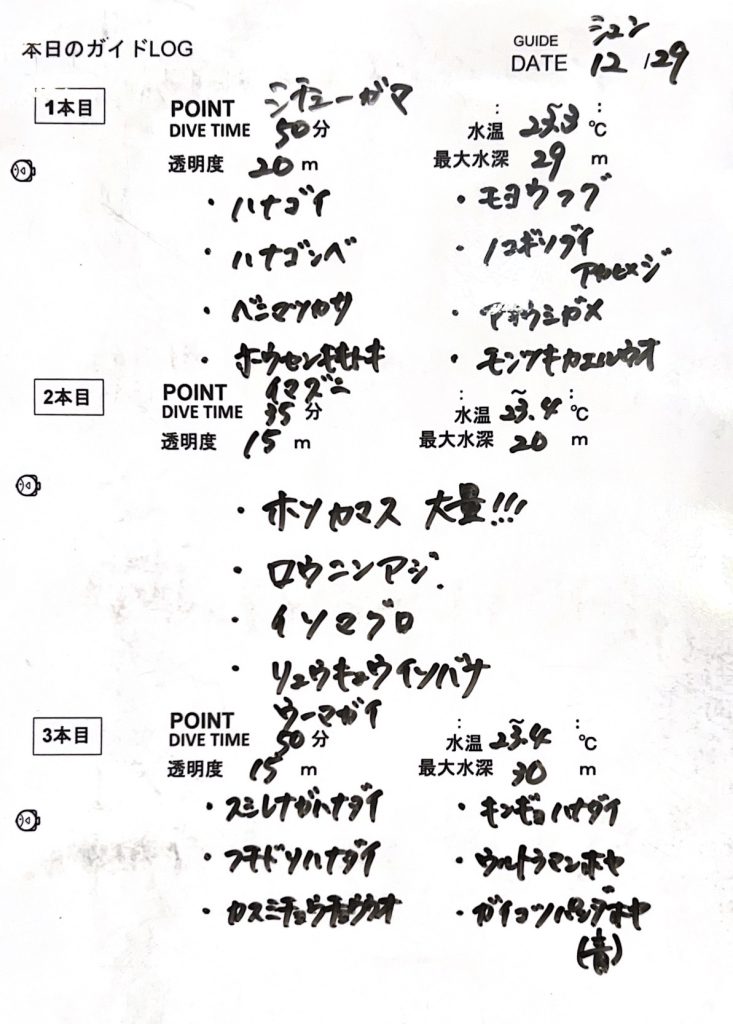 本日のガイドLOG
GUIDE シュン
DATE 12/29
1本目
POINT シチューガマ
DIVE TIME 50分
: ~ :
水温 23.3 ℃
透明度 20 m
最大水深 29 m
・ハナゴイ ・モヨウフグ
・ハナゴンベ ・ノコギリダイ
アカヒメジ
・ベニマツカサ ・アオウミガメ
・ホウセンキントキ ・モンツキカエルウオ
2本目
POINT イマズニ
DIVE TIME 35分
: ~ :
水温 23.4 ℃
透明度 15 m
最大水深 20 m
・ホソカマス 大量!!!
・ロウニンアジ.
・イソマグロ
・リュウキュウイソバナ
3本目
POINT ウーマガイ
DIVE TIME 50分
: ~ :
水温 23.4 ℃
透明度 15 m
最大水深 30 m
・スミレナガハナダイ ・キンギョハナダイ
・フチドリハナダイ ・ウルトラマンホヤ
・カスミチョウチョウウオ ・ガイコツパンダホヤ
(青)